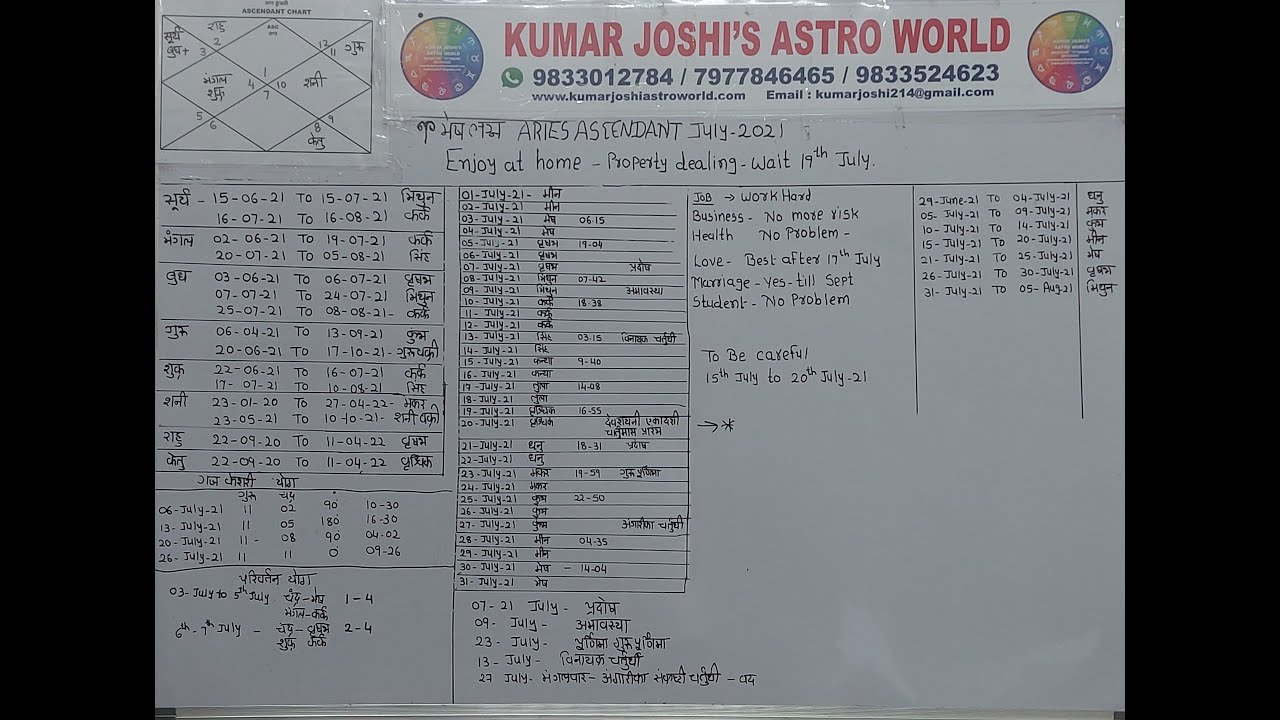 ASCENDANT CHART
ASC
लग्न
सूर्य
बुध+
राहु
गुरु
मंगल
शुक्र
शनी
केतु
1
2
3
4
5
6
7
8
9
10
11
12
KUMAR JOSHI'S ASTRO WORLD
KUMAR JOSHI'S ASTRO WORLD
KUMAR JOSHI'S ASTRO WORLD
9833012784 / 7977846465 / 9833524623
www.kumarjoshiastroworld.com Email : kumarjoshi214@gmail.com
♈ मेष लग्न ARIES ASCENDANT July-2021
Enjoy at home - Property dealing - Wait 19th July.
सूर्य - 15-06-21 TO 15-07-21 मिथुन
16-07-21 TO 16-08-21 कर्क
मंगल 02-06-21 TO 19-07-21 कर्क
20-07-21 TO 05-08-21 सिंह
बुध 03-06-21 TO 06-07-21 वृषभ
07-07-21 TO 24-07-21 मिथुन
25-07-21 TO 08-08-21- कर्क
गुरु 06-04-21 TO 13-09-21 कुंभ
20-06-21 TO 17-10-21 - गुरुवक्री
शुक्र 22-06-21 TO 16-07-21 कर्क
17-07-21 TO 10-08-21 सिंह
शनी 23-01-20 TO 27-04-22- मकर
23-05-21 TO 10-10-21- शनी वक्री
राहु 22-09-20 TO 11-04-22 वृषभ
केतु 22-09-20 TO 11-04-22 वृश्चिक
गज केशरी योग
गुरु चंद्र
06-July-21 11 02 90° 10-30
13-July-21 11 05 180° 16-30
20-July-21 11- 08 90° 04-02
26-July-21 11 11 0° 09-26
परिवर्तन योग
03-July to 5th July. चंद्र-मेष 1-4
मंगल-कर्क
6th-7th July - चंद्र-वृषभ 2-4
शुक्र कर्क
01-July-21- मीन
02-July-21 मीन
03-July-21 मेष 06.15
04-July-21 मेष
05-July-21 वृषभ 19-04
06-July-21 वृषभ
07-July-21 वृषभ प्रदोष
08-July-21 मिथुन 07-42
09-July-21 मिथुन अमावस्या
10-July-21 कर्क 18-38
11-July-21 कर्क
12-July-21 कर्क
13-July-21 सिंह 03.15 विनायक चतुर्थी
14-July-21 सिंह
15-July-21 कन्या 9-40
16-July-21 कन्या
17-July-21 तुला 14-08
18-July-21 तुला
19-July-21 वृश्चिक 16-55
20-July-21 वृश्चिक देवशयनी एकादशी
चातुर्मास प्रारंभ
21-July-21 धनु 18-31 प्रदोष
22-July-21 धनु
23-July-21 मकर 19-59 गुरुपूर्णिमा
24-July-21 मकर
25-July-21 कुंभ 22-50
26-July-21 कुंभ
27-July-21 कुंभ अंगारीका चतुर्थी
28-July-21 मीन 04-35
29-July-21 मीन
30-July-21 मेष - 14-04
31-July-21 मेष
07-21 July- प्रदोष
09- July- अमावस्या
23- July- पूर्णिमा गुरुपूर्णिमा
13- July- विनायक चतुर्थी
27 July- मंगळवार- अंगारीका संकष्टी चतुर्थी - वद्य
JOB → Work Hard
Business- No more risk
Health No Problem -
Love- Best after 17th July
Marriage- Yes- till Sept
Student- No Problem
To Be careful
15th July to 20th July-21
→ *
29-June-21 TO 04-July-21 धनु
05-July-21 TO 09-July-21 मकर
10-July-21 TO 14-July-21 कुंभ
15-July-21 TO 20-July-21 मीन
21-July-21 TO 25-July-21 मेष
26-July-21 TO 30-July-21 वृषभ
31-July-21 TO 05-Aug-21 मिथुन